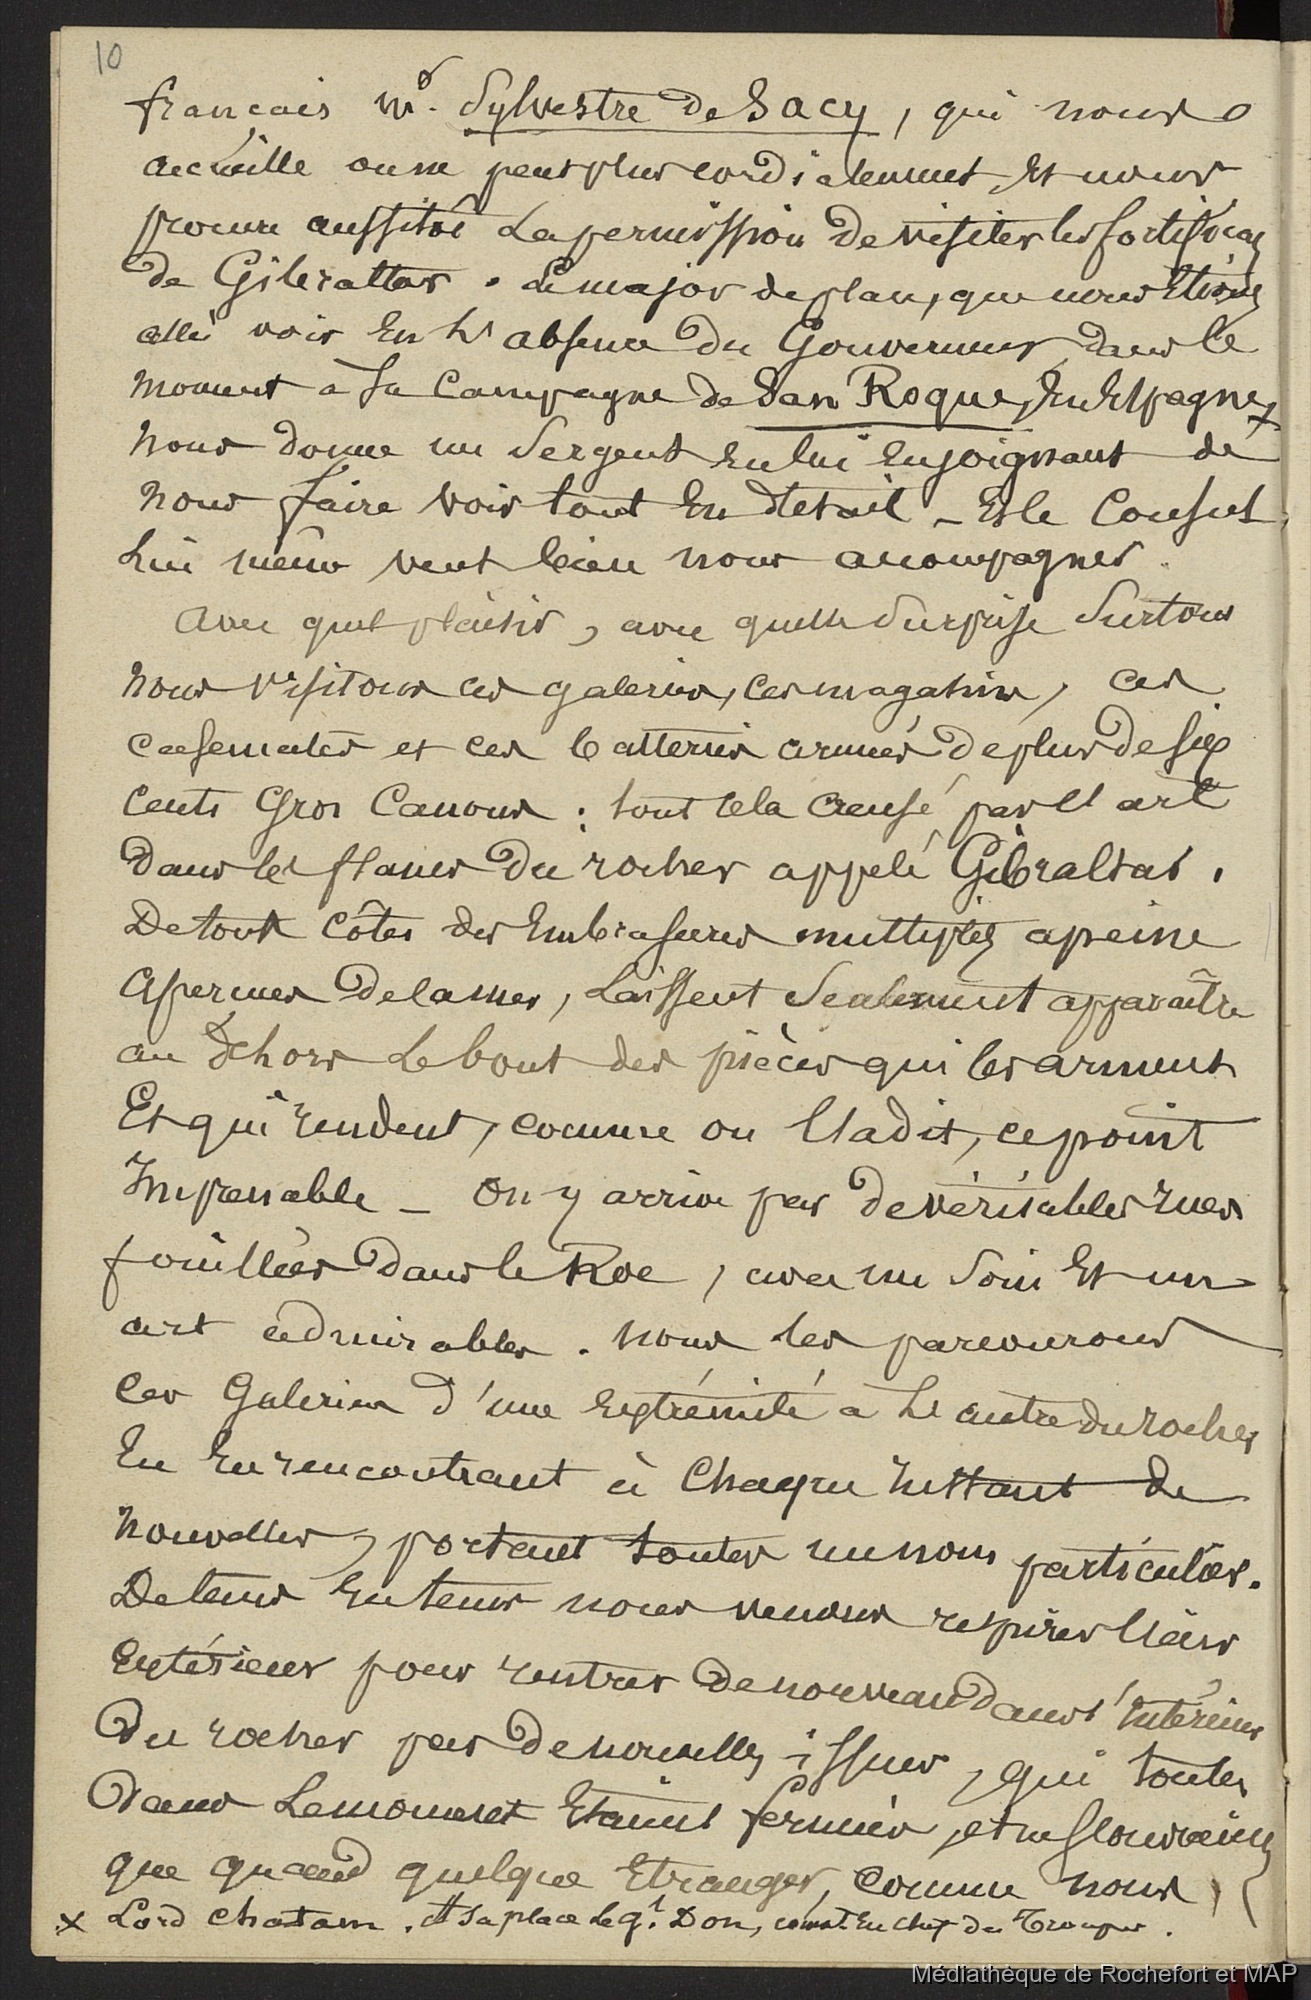 10
francais mr. Sylvestre de Sacy, qui nous
accüeille on ne peut plus cordialement, Et nous
procure aussitôt La permission De visiter les fortificons
De Gibraltar. Le major de place, que nous Etions
allé voir En L'absence Du Gouverneur, dans le
moment à Sa Campagne de San Roque, En Espagne x
nous donne un Sergent En lui Enjoignant de
nous faire voir tout En détail _ Et le Consul
Lui même veut bien nous accompagner.
Avec quel plaisir, avec quelle Surprise Surtout
nous visitons ces galeries, ces magasins, ces
casemates et ces batteries armées De plus De Six
cents Gros Canons : tout cela creusé par l'art
Dans les flancs Du rocher appelé Gibraltar.
De tout Côtés des Embrasures multipliées apeine
aperçues De la mer, Laissent Seulement apparaître
au Dehors Le bout des pièces qui les arment
Et qui rendent, comme on l'a dit, ce point
Imprenable _ On y arrive par De véritables rues
fouillées Dans le Roc, avec un Soin Et un
art admirables. nous les parcourons
Ces Galeries D'une Extrémité à L'autre du rocher
En En rencontrant à Chaque Instant de
nouvelles, portant toutes un nom particulier.
De tems En tems nous venons respirer l'air
Extérieur pour rentrer De nouveau Dans l'Intérieur
Du rocher par De nouvelles issues, qui toutes
Dans Le moment Etaient fermées, et ne s'ouvraient
que quand quelque Etranger, comme nous
x Lord Chatam. A sa place le gl. Don, comt. En chef des Troupes.
Médiathèque de Rochefort et MAP